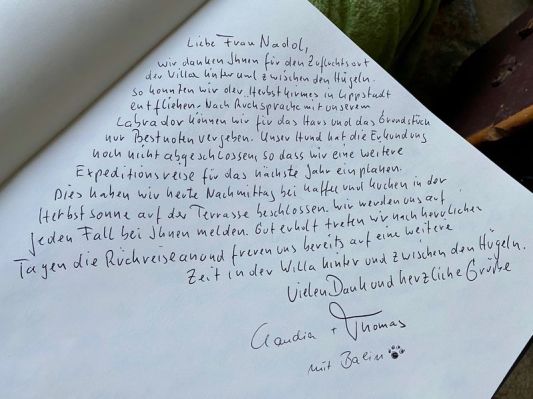 Liebe Frau Nadol,
wir danken Ihnen für den Zufluchtsort
der Villa hinter und zwischen den Hügeln.
So konnten wir der Herbstkirmes in Lippstadt
entfliehen. Nach Rücksprache mit unserem
Labrador können wir für das Haus und das Grundstück
nur Bestnoten vergeben. Unser Hund hat die Erkundung
noch nicht abgeschlossen, so dass wir eine weitere
Expeditionsreise für das nächste Jahr einplanen.
Dies haben wir heute Nachmittag bei Kaffee und Kuchen in der
Herbstsonne auf der Terrasse beschlossen. Wir werden uns auf
jeden Fall bei Ihnen melden. Gut erholt treten wir nach herrlichen
Tagen die Rückreise an und freuen uns bereits auf eine weitere
Zeit in der Villa hinter und zwischen den Hügeln.
Vielen Dank und herzliche Grüße
Claudia + Thomas
mit Balin